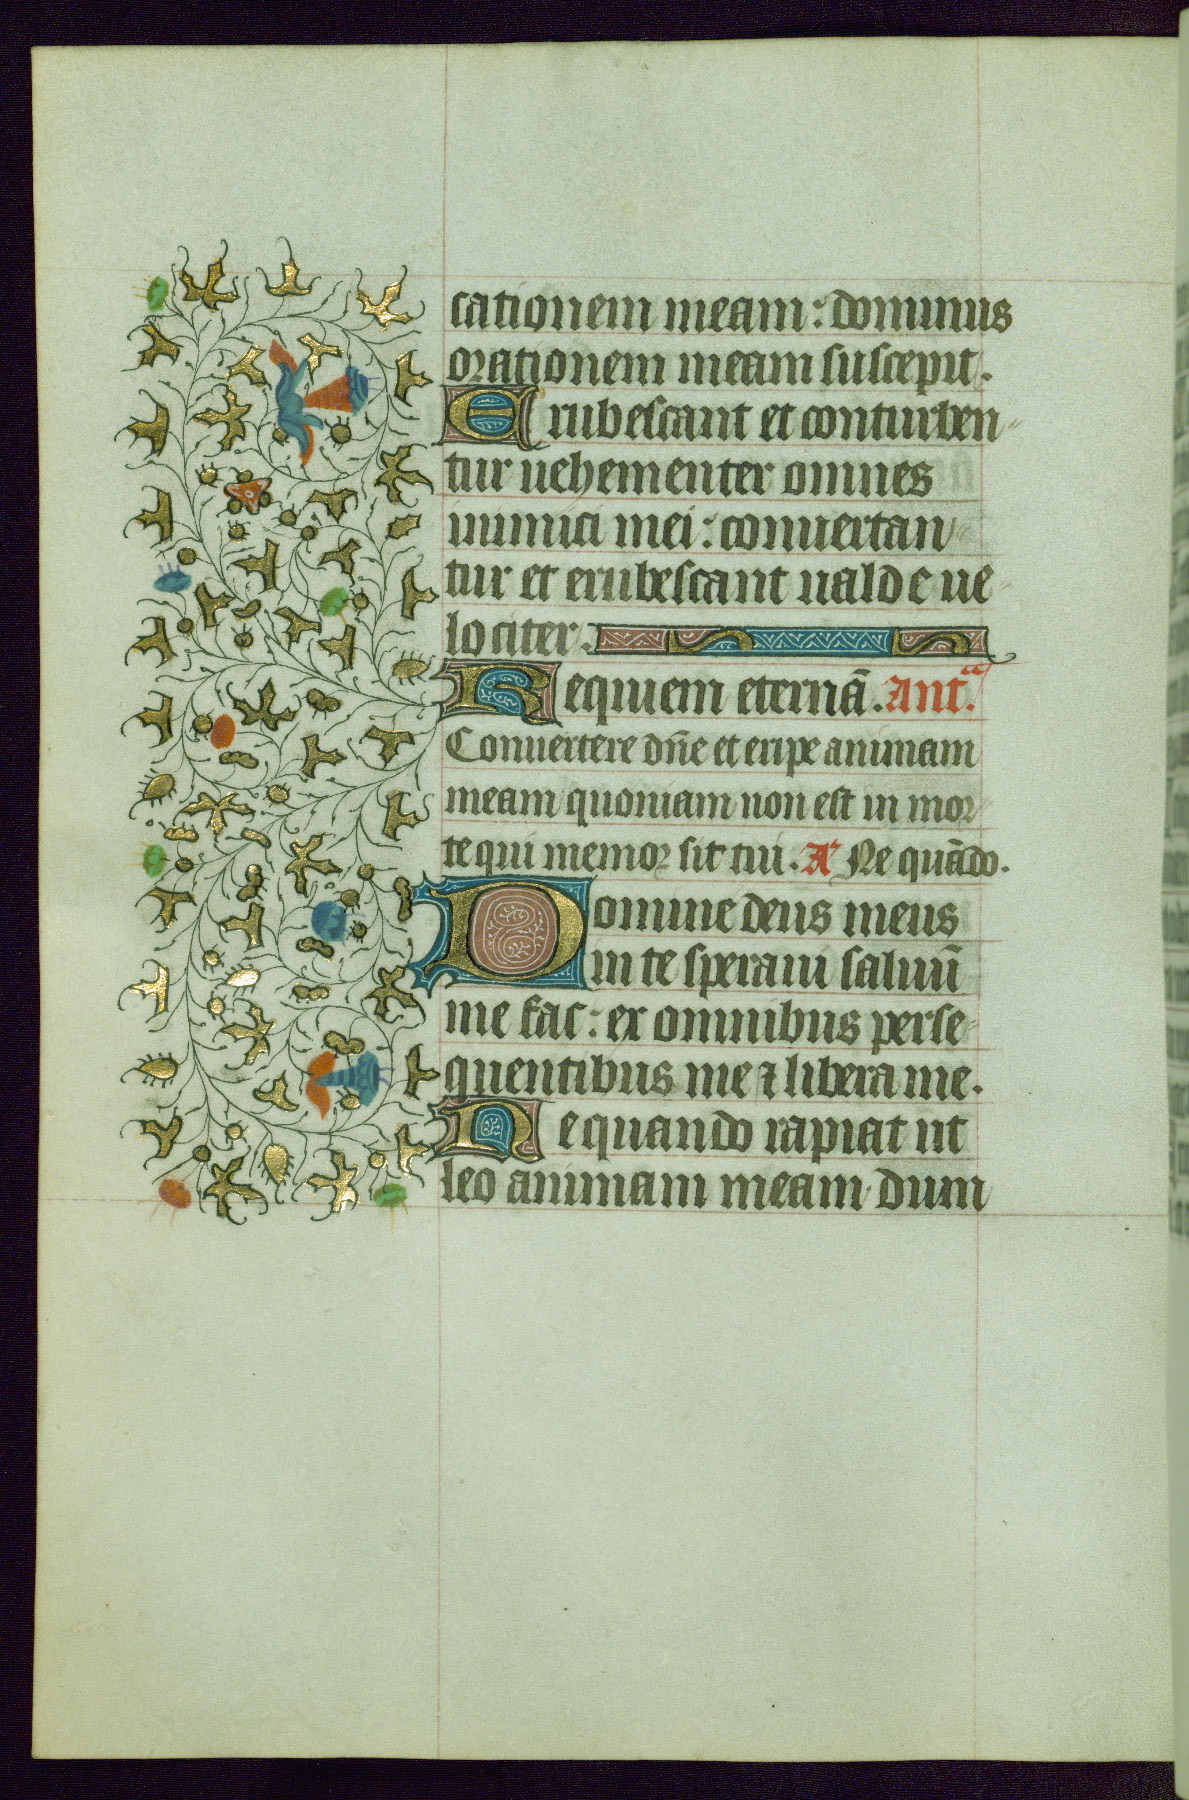 cationem meam: dominus
orationem meam suscepit.
Erubescant et conturben-
tur uehementer omnes
inimici mei: conuertan-
tur et erubescant ualde ue-
lociter.
Requiem eternā. Ant.ᵃ
Conuertere dn̄e et eripe animam
meam quoniam non est in mor-
te qui memor sit tui. A' Ne quādo.
Domine deus meus
in te speraui saluū
me fac: ex omnibus perse-
quentibus me ⁊ libera me.
Nequando rapiat ut
leo animam meam dum